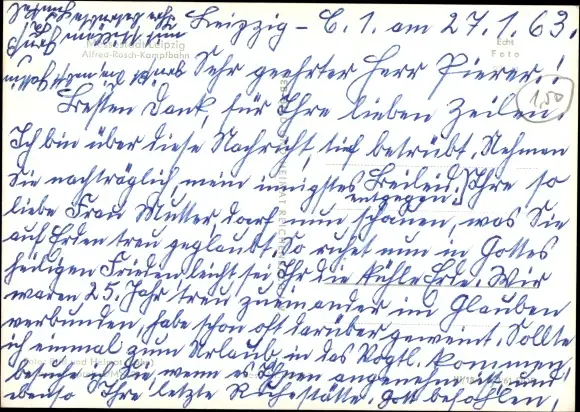 Leipzig - C. 1. am 27.1.63.
Messestadt Leipzig
Alfred-Rosch-Kampfbahn
Echt
Foto
1,50
Sehr geehrter Herr Pierer!
Besten Dank, für Ihre lieben Zeilen.
Ich bin über diese Nachricht, tief betrübt. Nehmen
Sie nachträglich, mein innigstes Beileid entgegen. Ihre so
liebe Frau Mutter, darf nun schauen, was Sie
auf Erden treu geglaubt. So ruhet nun in Gottes
heiligen Frieden, leicht sei Ihr die kühle Erde. Wir
waren 25. Jahr treu zueinander im Glauben
verbunden, habe schon oft darüber geweint. Sollte
ich einmal zum Urlaub, in das Vogtl. kommen,
besuche ich Sie, wenn es Ihnen angenehm ist und
ebenso Ihre letzte Ruhestätte. Gott befohlen,